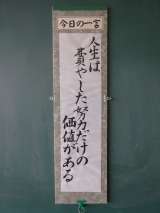 今日の一言
人生は
費やした努力だけの
価値がある